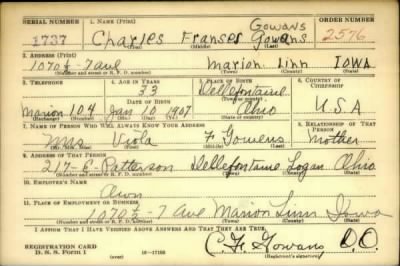 SERIAL NUMBER 1. NAME (Print) ORDER NUMBER
Gowans
1737 Charles Franses Gowans 2576
(First) (Middle) (Last)
2. ADDRESS (Print)
1070½-7 Ave Marion Linn IOWA
(Number and street or R. F. D. number) (Town) (County) (State)
3. TELEPHONE 4. AGE IN YEARS 5. PLACE OF BIRTH 6. COUNTRY OF CITIZENSHIP
33 Dellefontaine
DATE OF BIRTH (Town or county)
Marion 104 Jan 10 1907 Ohio U S A
(Exchange) (Number) (Mo.) (Day) (Yr.) (State or country)
7. NAME OF PERSON WHO WILL ALWAYS KNOW YOUR ADDRESS 8. RELATIONSHIP OF THAT PERSON
Mrs Viola F Gowens Mother
(Mr., Mrs., Miss) (First) (Middle) (Last)
9. ADDRESS OF THAT PERSON
217-E Patterson Dellefontaine Logan Ohio
(Number and street or R. F. D. number) (Town) (County) (State)
10. EMPLOYER'S NAME
Own
11. PLACE OF EMPLOYMENT OR BUSINESS
1070½-7 Ave Marion Linn Iowa
(Number and street or R. F. D. number) (Town) (County) (State)
I AFFIRM THAT I HAVE VERIFIED ABOVE ANSWERS AND THAT THEY ARE TRUE.
REGISTRATION CARD
D. S. S. Form 1 16-17105 C. F. Gowans D.O.
(Registrant's signature)